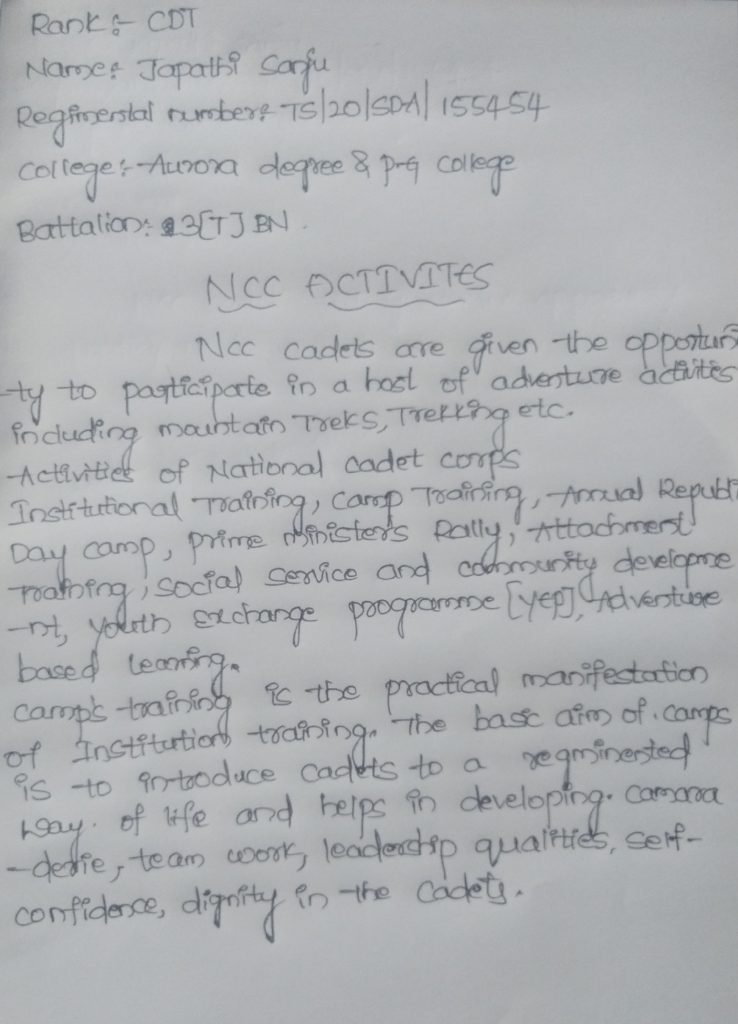 Rank:- CDT
Name: Japathi Sanju
Regimental number: TS/20/SDA/ 155454
College:- Aurora degree & p-G college
Battalion: 3[T] BN.
NCC ACTIVITES
Ncc cadets are given the opportuni
-ty to participate in a host of adventure activites
including mountain Treks, Trekking etc.
-Activities of National cadet corps
Institutional Training, camp Training, Annual Republi
Day camp, prime minister's Rally, Attachment
Training, social service and community developme
-nt, youth exchange programme [yep], Adventure
based learning.
camps training is the practical manifestation
of Institution training. The basic aim of. camps
is to introduce cadets to a regminented
way. of life and helps in developing. camara
-derie, team work, leadership qualities, self-
confidence, dignity in the cadets.